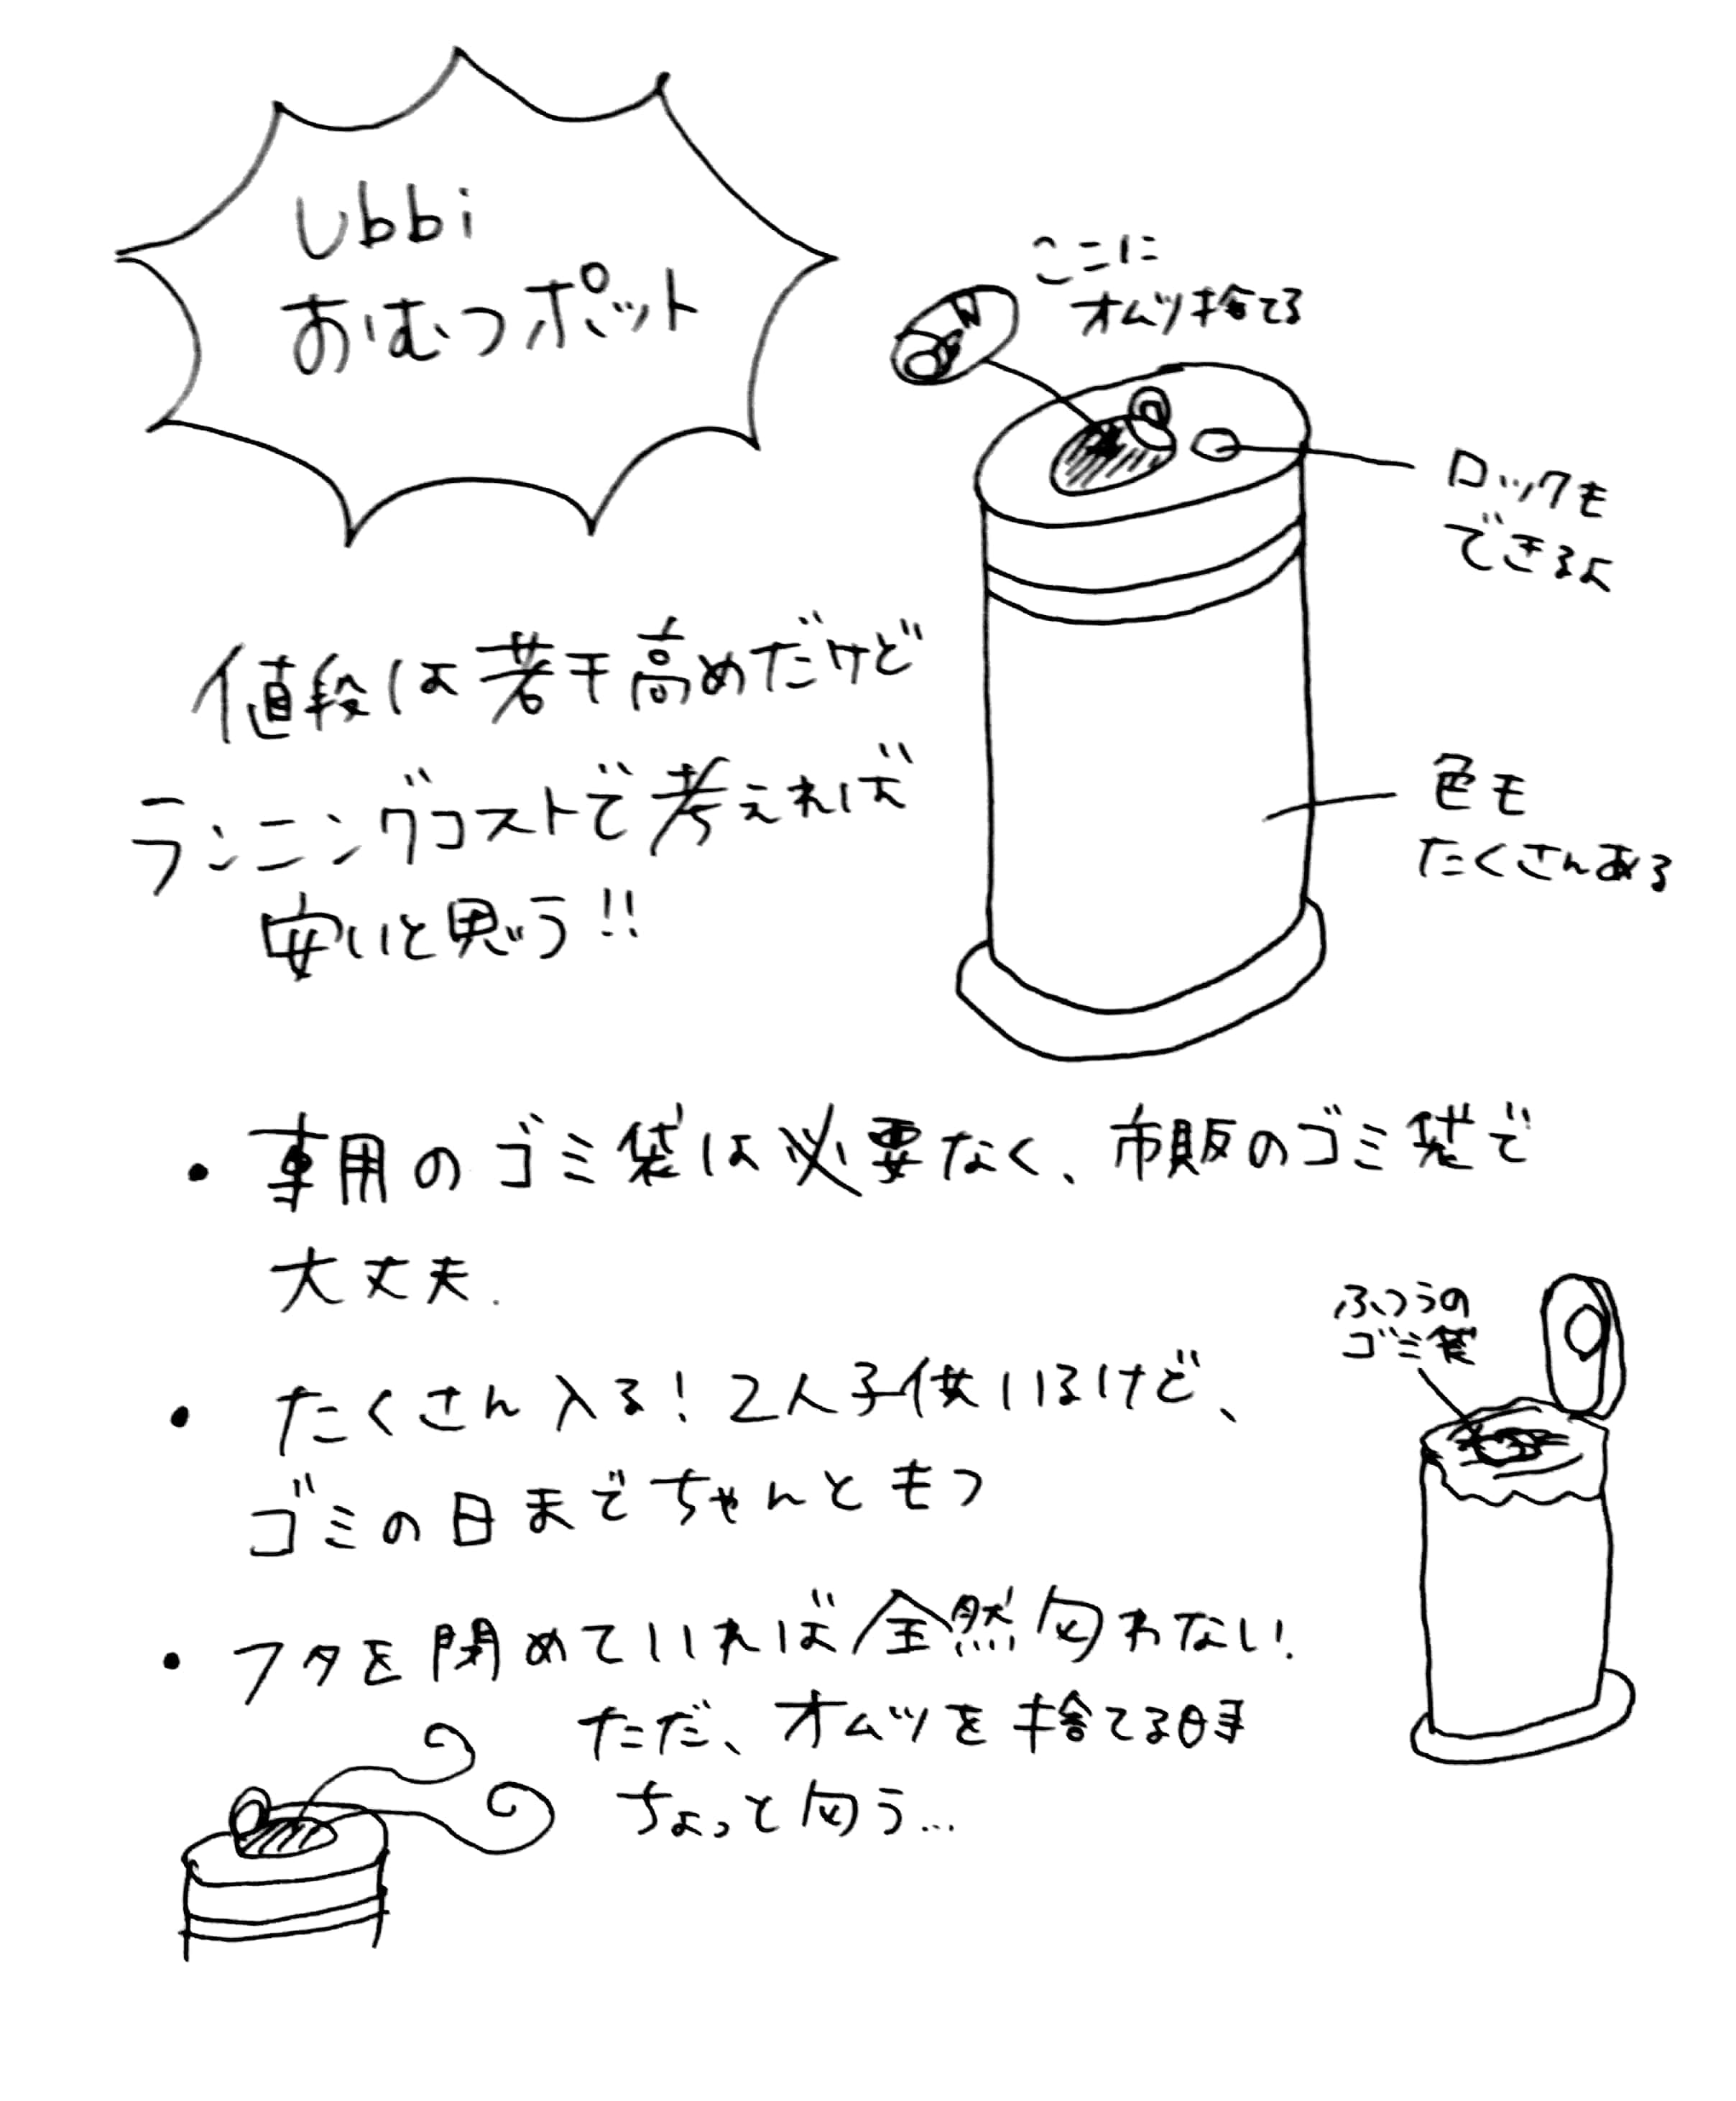 Ubbi
おむつポット
ここに
オムツ捨てる
ロックも
できるよ
値段は若干高めだけど
ランニングコストで考えれば
安いと思う!!
色も
たくさんある
・専用のゴミ袋は必要なく、市販のゴミ袋で
大丈夫.
ふつうの
ゴミ袋
・たくさん入る!2人子供いるけど、
ゴミの日までちゃんともつ
・フタを閉めていれば全然匂わない!
ただ、オムツを捨てる時
ちょっと匂う...